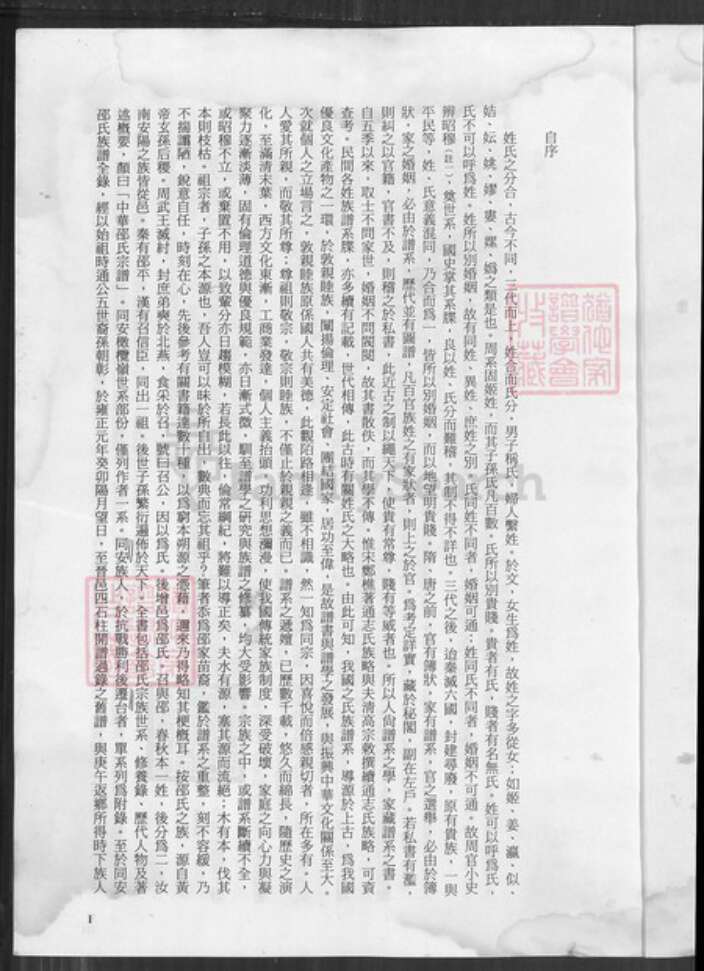 自序
姓氏之分合，古今不同，三代而上，姓合而氏分，男子稱氏，婦人繫姓。於文，女生爲姓，故姓之字多從女；如姬、姜、嬴、似、
姞、妘、姚、嫪、婁、嫘、嬀之類是也。周系固姬姓，而其子孫氏凡百數。氏所以別貴賤。貴者有氏，賤者有名無氏。姓可以呼爲氏，
氏不可以呼爲姓。姓所以別婚姻，故有同姓、異姓、庶姓之別。氏同姓不同者，婚姻可通；姓同氏不同者，婚姻不可通。故周官小史
辨昭穆（註一）、奠世系，國史掌其系牒，良以姓、氏分而難稽，其制不得不詳也。三代之後，迨秦滅六國，封建尋廢，原有貴族，一與
平民等，姓、氏意義混同，乃合而爲一，皆所以別婚姻，而以地望明貴賤。隋、唐之前，官有簿狀，家有譜系，官之選舉，必由於簿
狀，家之婚姻，必由於譜系，歷代並有圖譜，凡百官族姓之有家狀者，則上之於官。爲考定詳實，藏於秘閣，副在左戶。若私書有濫，
則糾之以官籍，官書不及，則稽之於私書，此近古之制以繩天下，使貴有常尊，賤有等威者也。所以人尙譜系之學，家藏譜系之書。
自五季以來，取士不問家世，婚姻不問閥閱，故其書散佚，而其學不傳。惟宋鄭樵著通志氏族略與夫淸高宗敕撰續通志氏族略，可資
查考。民間各姓族譜系牒，亦多續有記載，世代相傳，此古時有關姓氏之大略也。由此可知，我國之氏族譜系，導源於上古，爲我國
優良文化產物之一環，於敦親睦族，闡揚倫理、安定社會、團結國家，居功至偉，是故譜書與譜學之發展，與振興中華文化關係至大。
次就個人之立場言之。敦親睦族原係國人共有美德，此觀陌路相逢，雖不相識，然一知爲同宗，因喜悅而倍感親切者，所在多有。人
人愛其所親，而敬其所尊；尊祖則敬宗，敬宗則睦族，不僅止於親親之義而已。譜系之遞嬗，已歷數千載，悠久而綿長，隨歷史之演
化，至滿淸末葉，西方文化東漸，工商業發達，個人主義抬頭，功利思想瀰漫，使我國傳統家族制度，深受破壞，家庭之向心力與凝
聚力逐漸淡薄，固有倫理道德與優良規範，亦日漸式微，馴至譜學之硏究與族譜之修纂，均大受影響。宗族之中，或譜系斷續不全，
或昭穆不立，或棄置不用，以致輩分亦日趨模糊，若長此以往，倫常綱紀，將難以導正矣，夫水有源，塞其源而流絕；木有本，伐其
本則枝枯。祖宗者，子孫之本源也，吾人豈可以昧於所自出，數典而忘其祖乎？筆者忝爲邵家苗裔，鑑於譜系之重整，刻不容緩，乃
不揣譾陋，銳意自任，時刻在心，先後參考有關書籍達數十種，以爲窮本朔源之憑藉，邇來乃得略知其梗槪耳。按邵氏之族，源自黃
帝玄孫后稷。周武王滅紂，封庶弟奭於北燕，食采於召，號曰召公，因以爲氏。後增邑爲邵氏，召與邵，春秋本一姓，後分爲二，汝
南安陽之族皆從邑。秦有邵平，漢有召信臣，同出一祖。後世子孫繁衍遍佈於天下。全書包括邵氏宗族世系、修養錄、歷代人物及著
述槪要，顏曰「中華邵氏宗譜」。同安橄欖嶺世系部份，僅列作者一系。同安族人，於抗戰勝利後遷台者，單系列爲附錄。至於同安
邵氏族譜全錄，經以始祖時通公五世裔孫朝彰，於雍正元年癸卯陽月望日，至晉邑四石柱開譜過錄之舊譜，與庚午返鄉所得時下族人
I